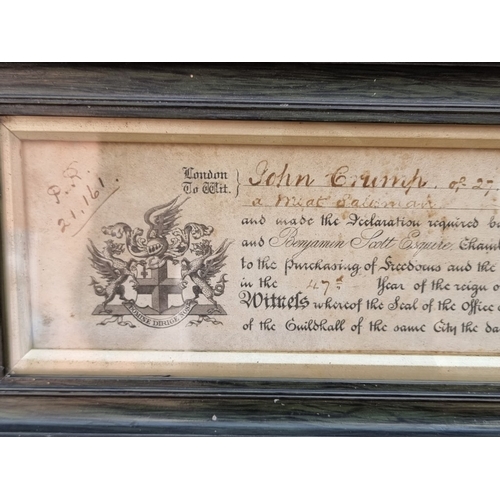 P. R.
21.161.
London
To Wit.
John Crump. of 27,
a Meat Salesman
and made the Declaration required b
and Benjamin Scott Esquire, Cham
to the Purchasing of Freedoms and the
in the 47th Year of the reign o
Witness whereof the Seal of the Office o
of the Guildhall of the same City the da
DOMINE DIRIGE NOS